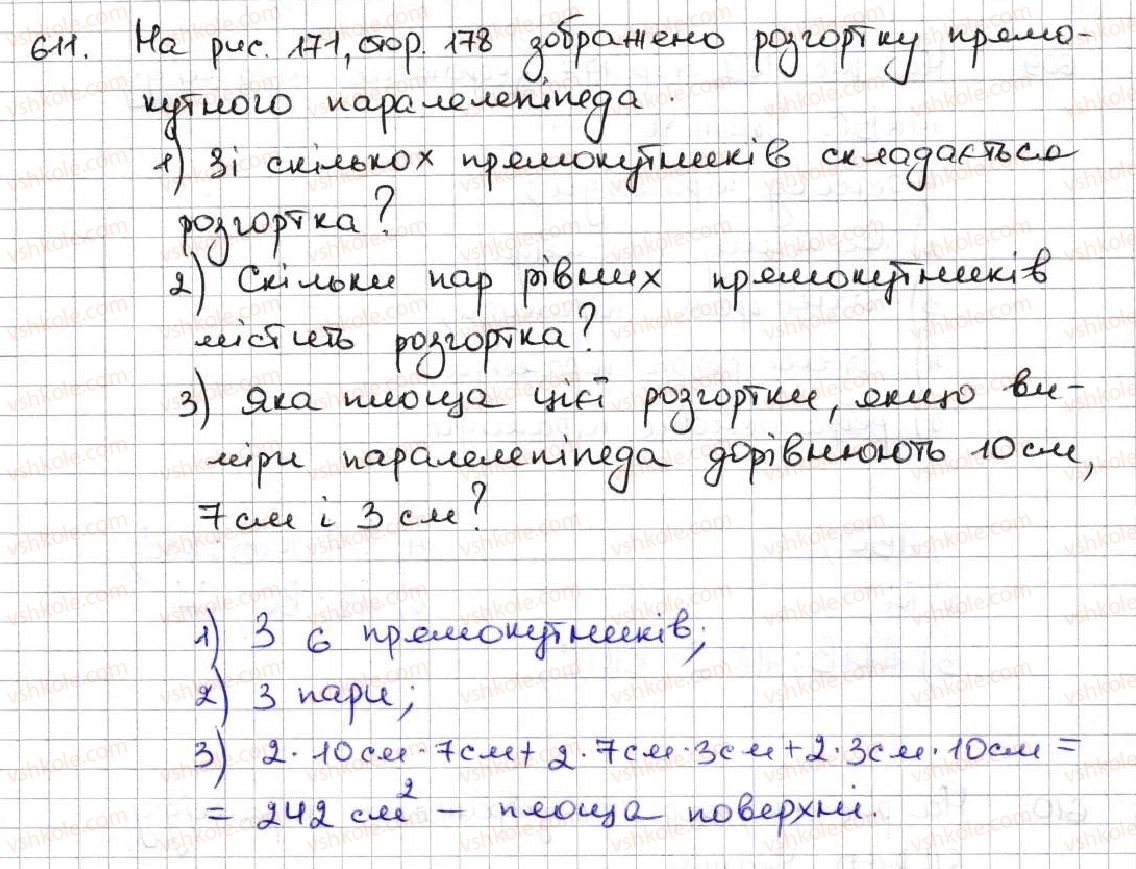 611. На рис. 171, стор. 178 зображено розгортку прямо-
кутного паралелепіпеда.
1) Зі скількох прямокутників складається
розгортка?
2) Скільки пар рівних прямокутників
містить розгортка?
3) Яка площа цієї розгортки, якщо ви-
міри паралелепіпеда дорівнюють 10 см,
7 см і 3 см?
1) З 6 прямокутників;
2) 3 пари;
3) 2 · 10 см · 7 см + 2 · 7 см · 3 см + 2 · 3 см · 10 см =
= 242 см² – площа поверхні.